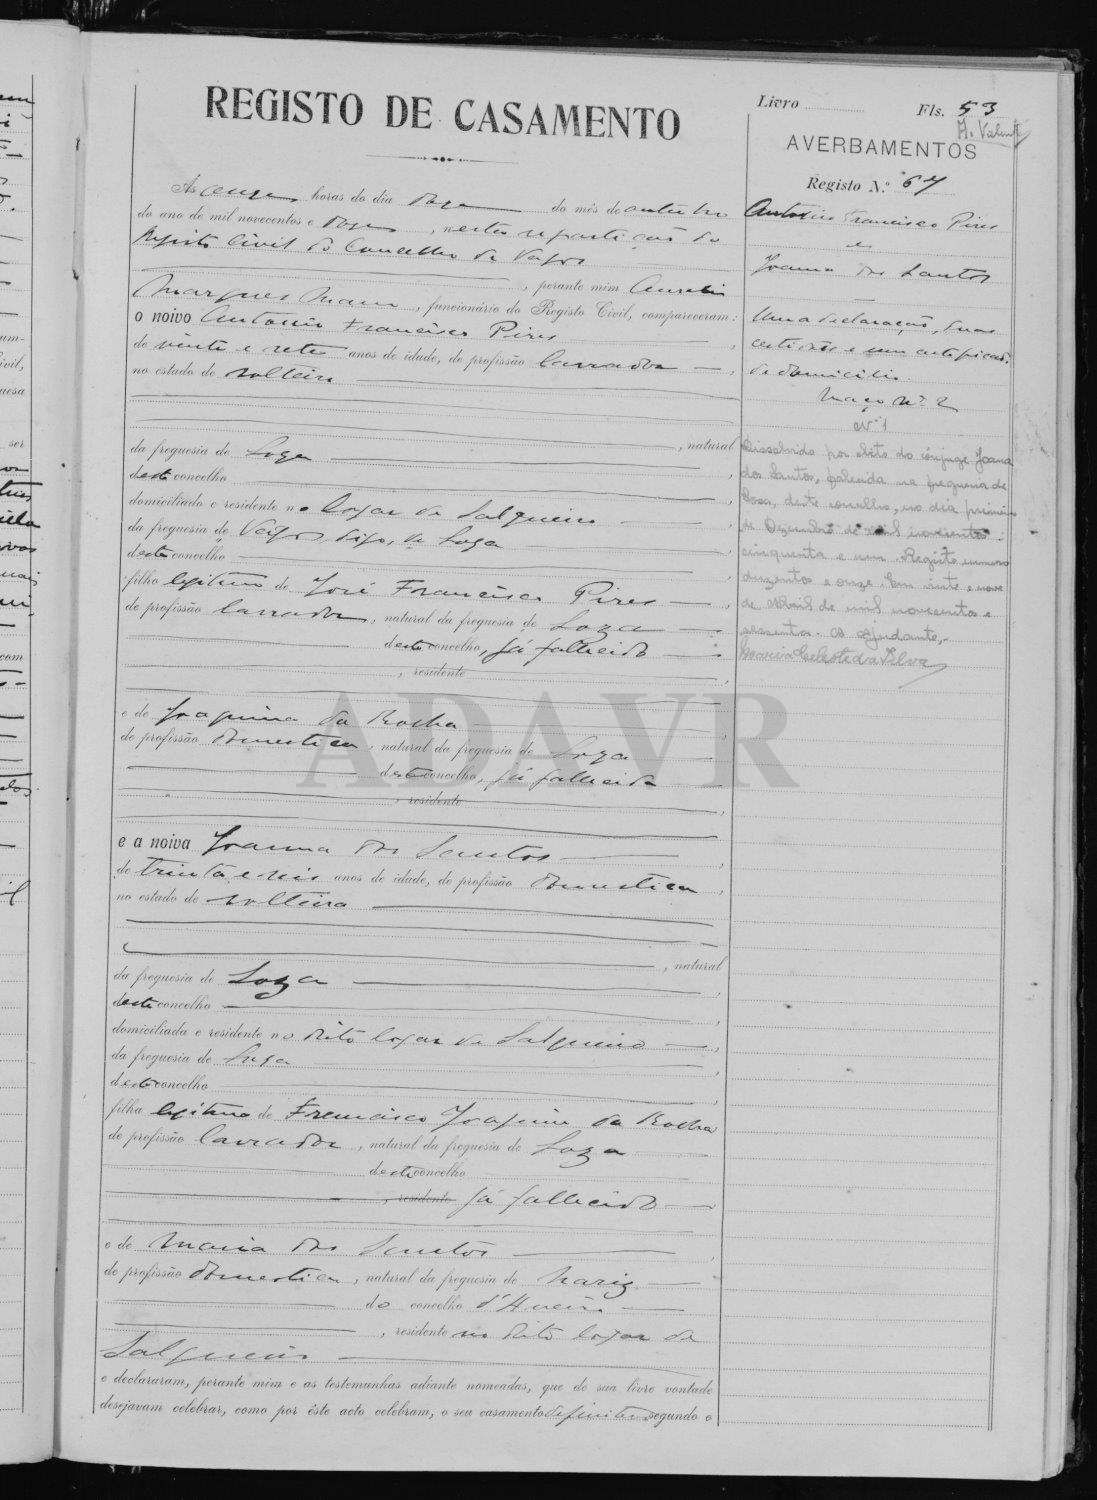 REGISTO DE CASAMENTO
Livro
Fls. 53
A. Valente
AVERBAMENTOS
Registo N.º 67
As onze horas do dia doze do mês de outubro
do ano de mil novecentos e doze, nesta repartição do
Registo Civil do Concelho de Vagos
, perante mim Aurelio
Marques Mano, funcionário do Registo Civil, compareceram:
o noivo Antonio Francisco Pires
de vinte e sete anos de idade, de profissão lavrador,
no estado de solteiro
, natural
da freguesia de Soza
deste concelho
domiciliado e residente no logar de Salgueiro
da freguesia de Vagos, digo, de Soza
deste concelho
filho legitimo de José Francisco Pires
de profissão lavrador, natural da freguesia de Soza
deste concelho, já fallecido
, residente
e de Joaquina da Rocha
de profissão domestica, natural da freguesia de Soza
deste concelho, já fallecida
, residente
e a noiva Joanna dos Santos
de trinta e seis anos de idade, de profissão domestica,
no estado de solteira
, natural
da freguesia de Soza
deste concelho
domiciliada e residente no dito logar de Salgueiro
da freguesia de Soza
deste concelho
filha legitima de Francisco Joaquim da Rocha
de profissão lavrador, natural da freguesia de Soza
deste concelho
, residente já fallecido
e de Maria dos Santos
de profissão domestica, natural da freguesia de Nariz
do concelho d'Aveiro
, residente no dito logar de
Salgueiro
e declararam, perante mim e as testemunhas adiante nomeadas, que de sua livre vontade
desejavam celebrar, como por êste acto celebram, o seu casamento definitivo segundo o
Antonio Francisco Pires
e
Joanna dos Santos
Uma declaração, duas
certidões e um certificado
de domicilio.
Maço nº 2
Nº 1
Dissolvido por óbito do cônjuge Joana
dos Santos, falecida na freguesia de
Soza, deste concelho, no dia primeiro
de Dezembro de mil novecentos
cinquenta e um. Registo numero
duzentos e onze. Em vinte e nove
de Abril de mil novecentos e
sessenta. O Ajudante,
Maria Celeste da Silva
ADAVR